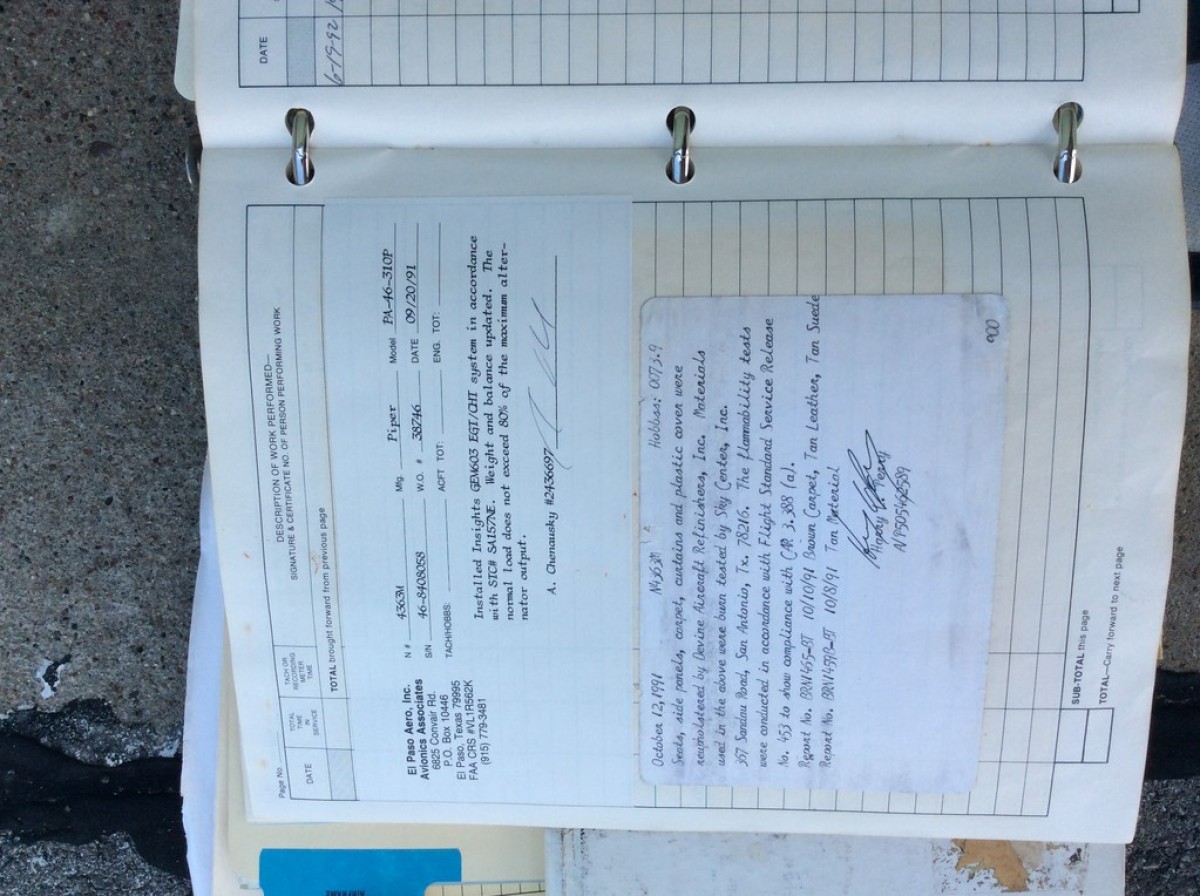 DATE
6-19-92
Page No.
DATE
TOTAL TIME IN SERVICE
TACH OR RECORDING METER TIME
DESCRIPTION OF WORK PERFORMED—
SIGNATURE & CERTIFICATE NO. OF PERSON PERFORMING WORK
TOTAL brought forward from previous page
El Paso Aero, Inc.
Avionics Associates
6825 Convair Rd.
P.O. Box 10446
El Paso, Texas 79995
FAA CRS #VL1R562K
(915) 779-3481
N # 4363M Mfg. Piper Model PA-46-310P
S/N 46-8408058 W.O. # 38746 DATE 09/20/91
TACH/HOBBS: ACFT TOT: ENG. TOT:
Installed Insights GEM603 EGT/CHT system in accordance
with STC# SA157NE. Weight and balance updated. The
normal load does not exceed 80% of the maximum alter-
nator output.
A. Chenausky #2436697
October 12,1991 N4363M Hobbs: 0073.9
Seats, side panels, carpet, curtains and plastic cover were
reupholstered by Devine Aircraft Refinishers, Inc. Materials
used in the above were burn tested by Sky Center, Inc.
357 Sandau Road, San Antonio, Tx. 78216. The flammability tests
were conducted in accordance with Flight Standard Service Release
No. 453 to show compliance with CAR 3.388 (a).
Report No. BRN1465-BT 10/10/91 Brown Carpet, Tan Leather, Tan Suede
Report No. BRN1459B-BT 10/8/91 Tan Material
Harry A. Perry
AP505462589
900
SUB-TOTAL this page
TOTAL—Carry forward to next page